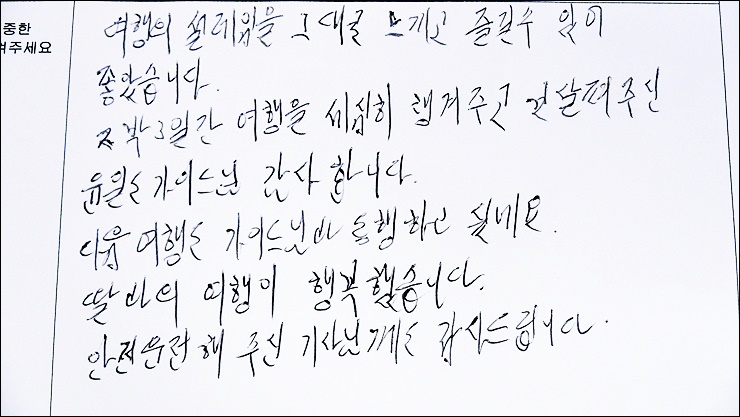 중한
겨주세요
여행의 설레임을 그대로 느끼고 즐길수 있어
좋았습니다.
2박3일간 여행을 세심히 챙겨주고 보살펴주신
가이드님 감사 합니다.
다음 여행도 가이드님과 동행하고 싶네요.
딸과의 여행이 행복했습니다.
안전운전해 주신 기사님께도 감사드립니다.